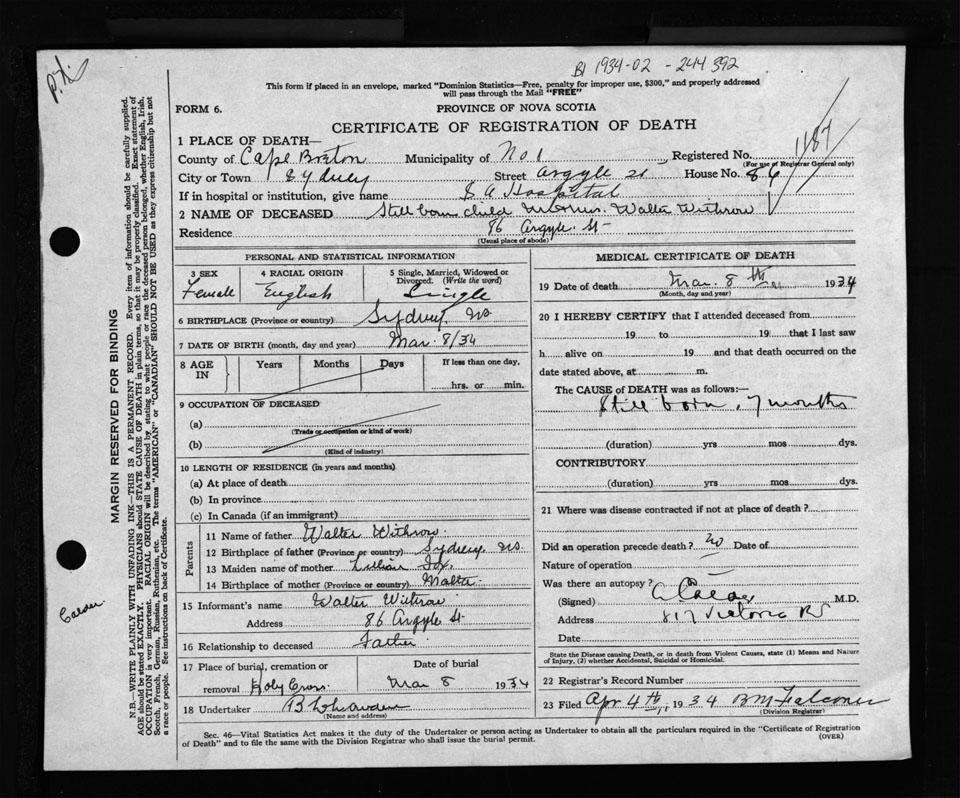 P.H.
B1 1934-02 - 244392
This form if placed in an envelope, marked "Dominion Statistics—Free, penalty for improper use, $300," and properly addressed
will pass through the Mail "FREE"
FORM 6.
PROVINCE OF NOVA SCOTIA
CERTIFICATE OF REGISTRATION OF DEATH
1187
1 PLACE OF DEATH—
County of Cape Breton Municipality of No 1 Registered No.
(For use of Registrar General only)
City or Town Sydney Street Argyle St House No. 86
If in hospital or institution, give name S A Hospital
2 NAME OF DECEASED Still born child Walter Withrow
Residence 86 Argyle St
(Usual place of abode)
PERSONAL AND STATISTICAL INFORMATION
3 SEX 4 RACIAL ORIGIN 5 Single, Married, Widowed or Divorced. (Write the word)
Female English Single
6 BIRTHPLACE (Province or country) Sydney NS.
7 DATE OF BIRTH (month, day and year) Mar 8/34
8 AGE IN Years Months Days If less than one day,
hrs. or min.
9 OCCUPATION OF DECEASED
(a)
(Trade or occupation or kind of work)
(b)
(Kind of industry)
10 LENGTH OF RESIDENCE (in years and months)
(a) At place of death
(b) In province
(c) In Canada (if an immigrant)
Parents
11 Name of father Walter Withrow
12 Birthplace of father (Province or country) Sydney NS
13 Maiden name of mother Lillian Fox
14 Birthplace of mother (Province or country) Malta
15 Informant's name Walter Withrow
Address 86 Argyle St
16 Relationship to deceased Father
17 Place of burial, cremation or Date of burial
removal Holy Cross Mar 8 1934
18 Undertaker
(Name and address)
MEDICAL CERTIFICATE OF DEATH
19 Date of death Mar. 8th 1934
(Month, day and year)
20 I HEREBY CERTIFY that I attended deceased from
19 to 19 that I last saw
h alive on 19 and that death occurred on the
date stated above, at m.
The CAUSE of DEATH was as follows:—
Still born, 7 months
(duration) yrs mos dys.
CONTRIBUTORY
(duration) yrs mos dys.
21 Where was disease contracted if not at place of death?
Did an operation precede death? No Date of
Nature of operation
Was there an autopsy?
(Signed) M.D.
Address 817 Victoria Rd
Date
State the Disease causing Death, or in death from Violent Causes, state (1) Means and Nature
of Injury, (2) whether Accidental, Suicidal or Homicidal.
22 Registrar's Record Number
23 Filed Apr 4th, 1934 B M Falconer
(Division Registrar)
Sec. 46—Vital Statistics Act makes it the duty of the Undertaker or person acting as Undertaker to obtain all the particulars required in the "Certificate of Registration
of Death" and to file the same with the Division Registrar who shall issue the burial permit.
(OVER)
MARGIN RESERVED FOR BINDING
N.B.—WRITE PLAINLY WITH UNFADING INK—THIS IS A PERMANENT RECORD. Every item of information should be carefully supplied.
AGE should be stated EXACTLY. PHYSICIANS should STATE CAUSE OF DEATH in plain terms, so that it may be properly classified. Exact statement of
OCCUPATION is very important. RACIAL ORIGIN will be described by stating to what people or race the deceased person belonged, whether English, Irish,
Scotch, French, German, Russian, Ruthenian, etc. The terms "AMERICAN" or "CANADIAN" SHOULD NOT BE USED as they express citizenship but not
a race or people. See instructions on back of Certificate.